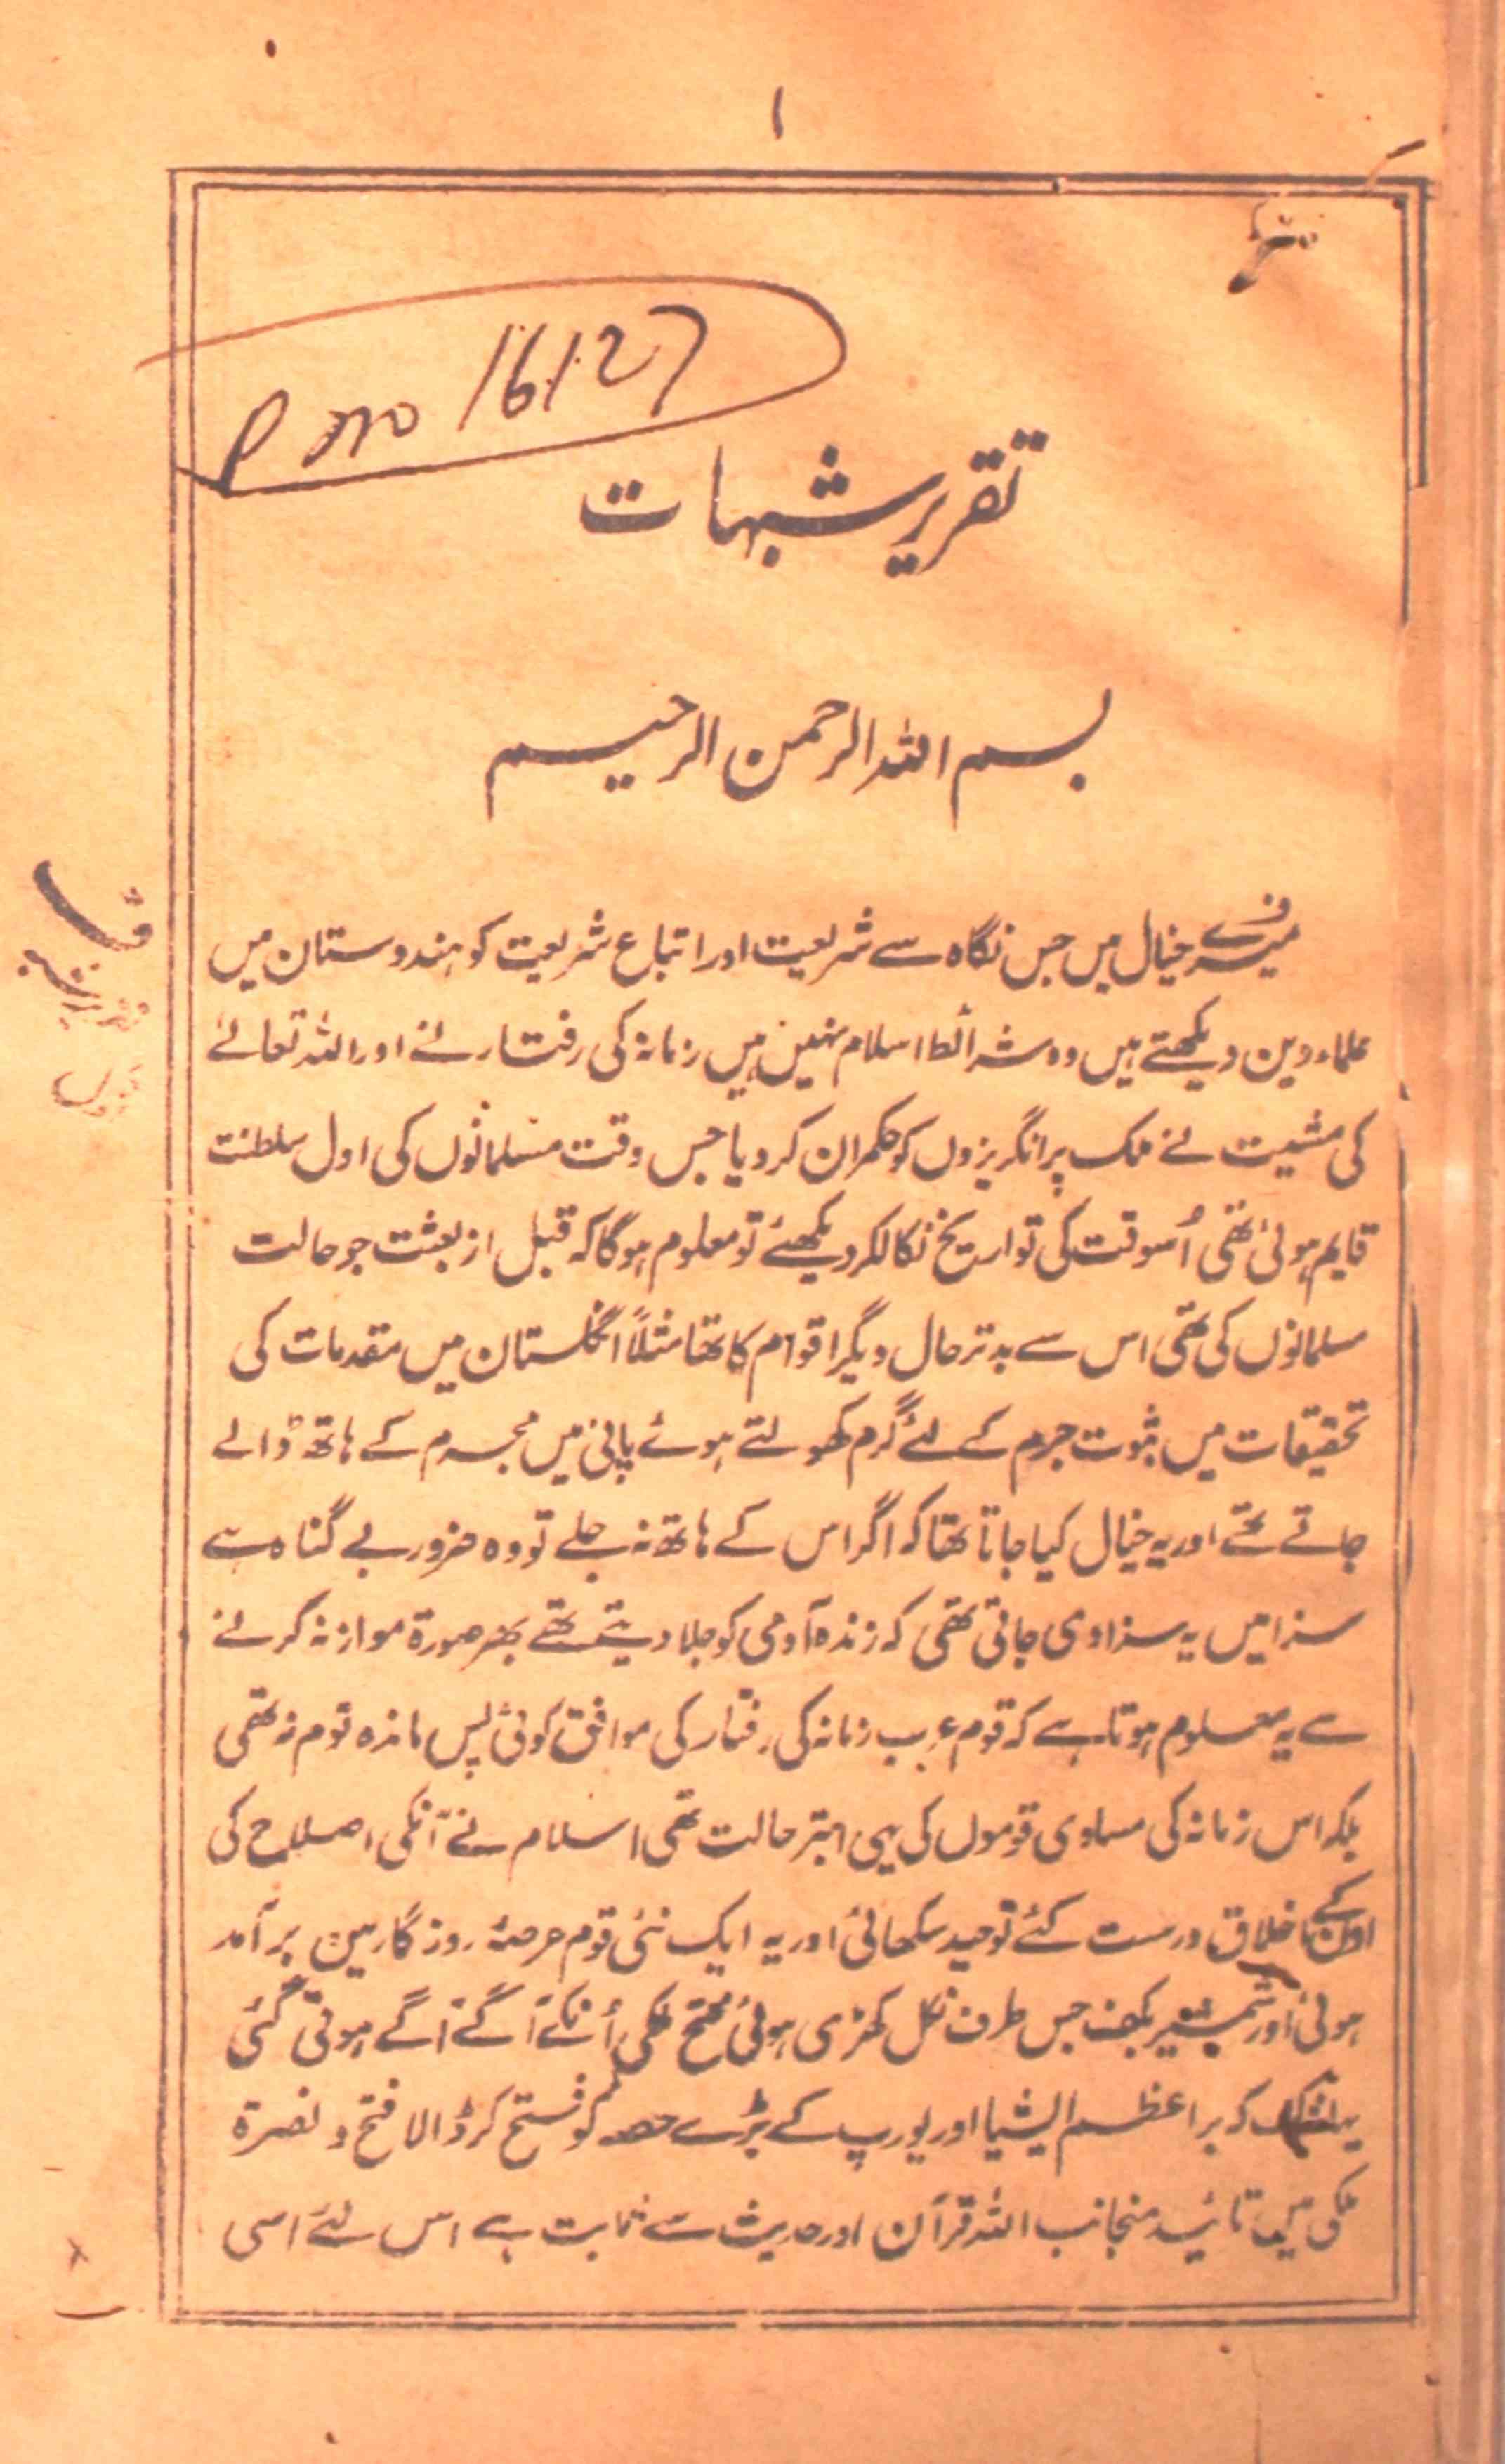 ۱
P no 16127
تقریر شبہات
بسم اللہ الرحمن الرحیم
میرے خیال میں جس نگاہ سے شریعت اور اتباع شریعت کو ہندوستان میں
علماء دین دیکھتے ہیں وہ شرائط اسلام نہیں ہیں زمانہ کی رفتار نے اور اللہ تعالےٰ
کی مشیت نے ملک پر انگریزوں کو حکمران کر دیا جس وقت مسلمانوں کی اول سلطنت
قایم ہوئی تھی اُسوقت کی تواریخ نکالکر دیکھئے تو معلوم ہوگا کہ قبل از بعثت جو حالت
مسلمانوں کی تھی اس سے بدتر حال دیگر اقوام کا تھا مثلاً انگلستان میں مقدمات کی
تحقیقات میں ثبوت جرم کے لئے گرم کھولتے ہوئے پانی میں مجرم کے ہاتھ ڈالے
جاتے تھے اور یہ خیال کیا جاتا تھا کہ اگر اس کے ہاتھ نہ جلے تو وہ ضرور بے گناہ ہے
سزا میں یہ سزا دی جاتی تھی کہ زندہ آدمی کو جلا دیتے تھے بہر صورۃ موازنہ کرنے
سے یہ معلوم ہوتا ہے کہ قوم عرب زمانہ کی رفتار کی موافق کوئی پس ماندہ قوم نہ تھی
بلکہ اس زمانہ کی مساوی قوموں کی یہی ابتر حالت تھی اسلام نے اُنکی اصلاح کی
اون کے اخلاق درست کئے توحید سکھائی اور یہ ایک نئی قوم عرصۂ روزگار میں برآمد
ہوئی اور شمشیر بکف جس طرف نکل کھڑی ہوئی فتح ملکی اُنکے آگے آگے ہوتی گئی
یہانتک کہ براعظم ایشیا اور یورپ کے بڑے حصہ کو فتح کر ڈالا فتح و نصرۃ
ملکی میں تائید منجانب اللہ قرآن اور حدیث سے ثابت ہے اس لئے اسی